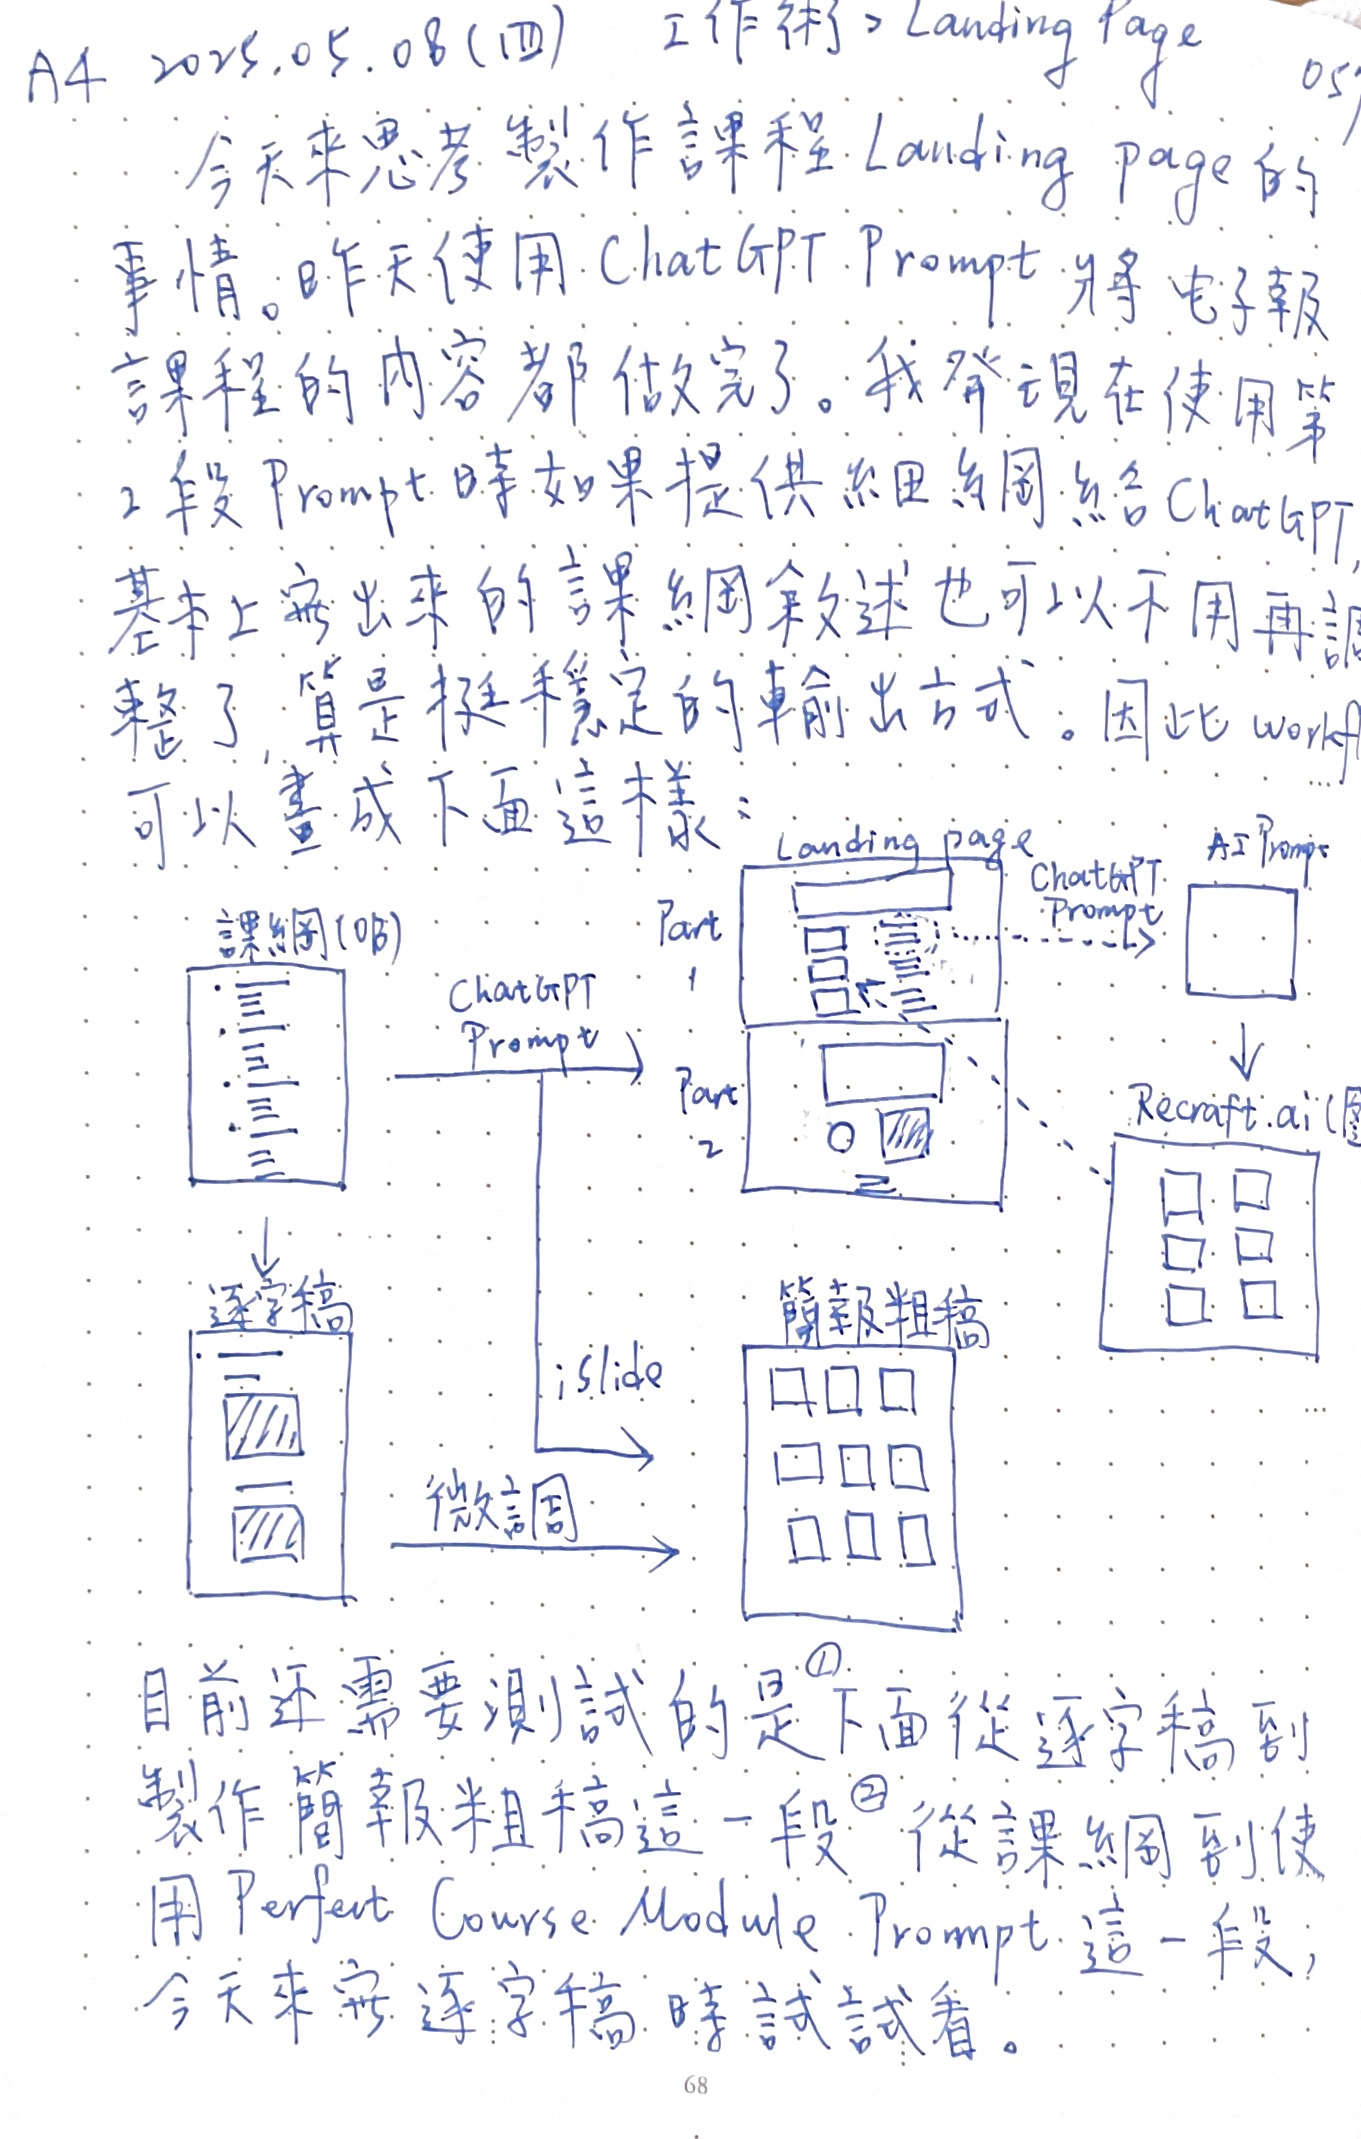 A4 2025.05.08(四) 工作術>Landing Page
057
今天來思考製作課程Landing page的
事情。昨天使用ChatGPT Prompt將电子報
課程的內容都做完了。我發現在使用第
2段Prompt時如果提供細綱給ChatGPT,
基本上寫出來的課綱敘述也可以不用再調
整了,算是挺穩定的輸出方式。因此workfl
可以畫成下面這樣:
Landing page
AI Prompt
ChatGPT
Prompt
課綱(OB)
Part
1
ChatGPT
Prompt
Part
2
Recraft.ai(圖
逐字稿
簡報粗稿
iSlide
微調
目前还需要測試的是①下面從逐字稿到
製作簡報粗稿這一段②從課綱到使
用Perfect Course Module Prompt這一段,
今天來寫逐字稿時試試看。
68